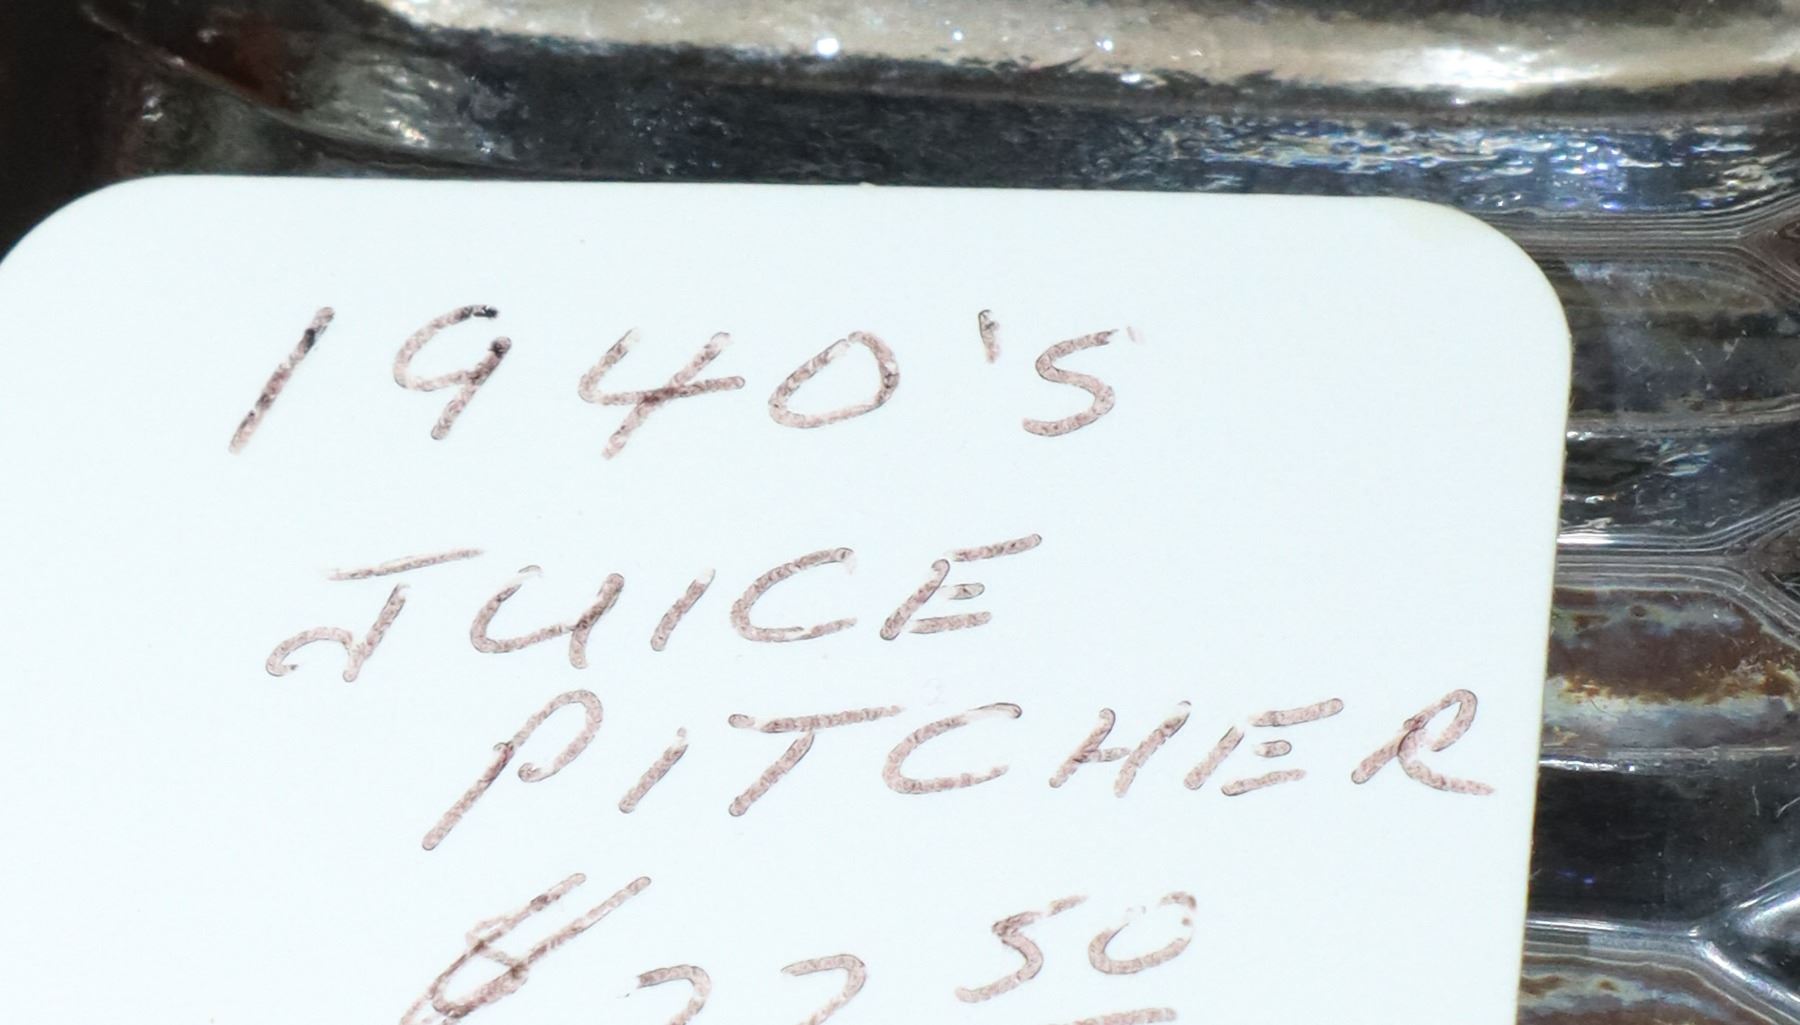 1940'S
JUICE
PITCHER